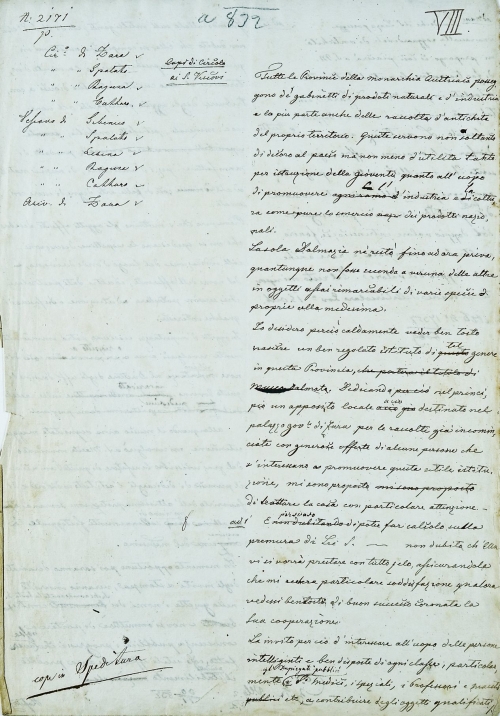 N: 2171
p.
a 832
VIII
Cir.e di Zara
" " Spalato
" " Ragusa
" " Cattaro
Vescovo di Sebenico
" " Spalato
" " Lesina
" " Ragusa
" " Cattaro
Arciv. di Zara
Capi di Circolo
ai S. Vescovi
Tutte le Provincie della Monarchia Austriaca posseg
gono de' gabinetti di prodotti naturali e d'industria
e la più parte anche delle raccolte d'antichità
del proprio territorio: Queste servono non soltanto
di decoro al paese ma non meno d'utilità tanto
per istruzione della gioventù quanto all'scopo
di promuovere ogni ramo l' d'industria e la coltu,
ra come pure lo smercio dei prodotti nazio,
nali.
La sola Dalmazia ne restò finoadora priva,
quantunque non fosse seconda a veruna delle altre
in oggetti assai rimarcabili di varie specie
proprie alla medesima.
Io desidero perciò caldamente veder ben tosto
nascere un ben regolato istituto di questo tal genere
in questa Provincia, che porterà il titolo di
Museo Dalmata. Dedicando perciò nel princi,
pio un apposito locale a ciò già destinato nel
palazzo gov.e di Zara per le raccolte già incomin,
ciate con generose offerte di alcune persone che
s'interessano a promuovere questa utile istitu,
zione, mi sono proposto mi sono proposto
di trattare la cosa con particolare attenzione.
ad 1 E non dubitando persuaso di poter far calcolo sulla
premura di Lei S. — non dubita ch'Ella
vi si vorrà prestare con tutto zelo, assicurandola
che mi sarà particolare soddisfazione qualora
vedessi bentosto di buon successo coronata la
sua cooperazione.
La invito perciò d'interessare all'uopo delle persone
intelligenti e ben disposte di ogni classe, particolar
gl'Impiegati pubblici
mente i medici, i speziali, i professori e maestri
pubblici etc, a contribuire degli oggetti qualificati
copia Speditura